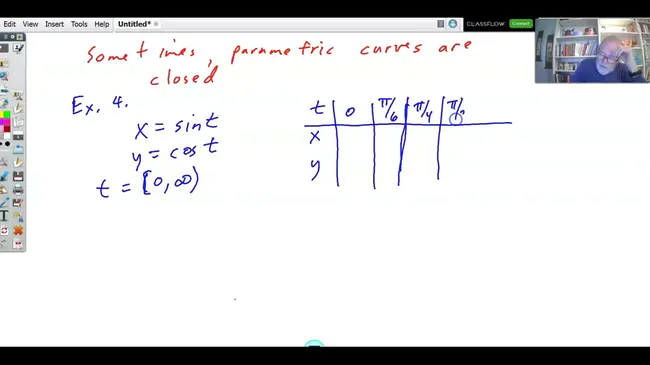 File Edit View Insert Tools Help Untitled* CLASSFLOW Connect
sometimes, parametric curves are
closed
Ex. 4.
x = sin t
y = cos t
t = [0,∞)
t 0 π/6 π/4 π/
x
y